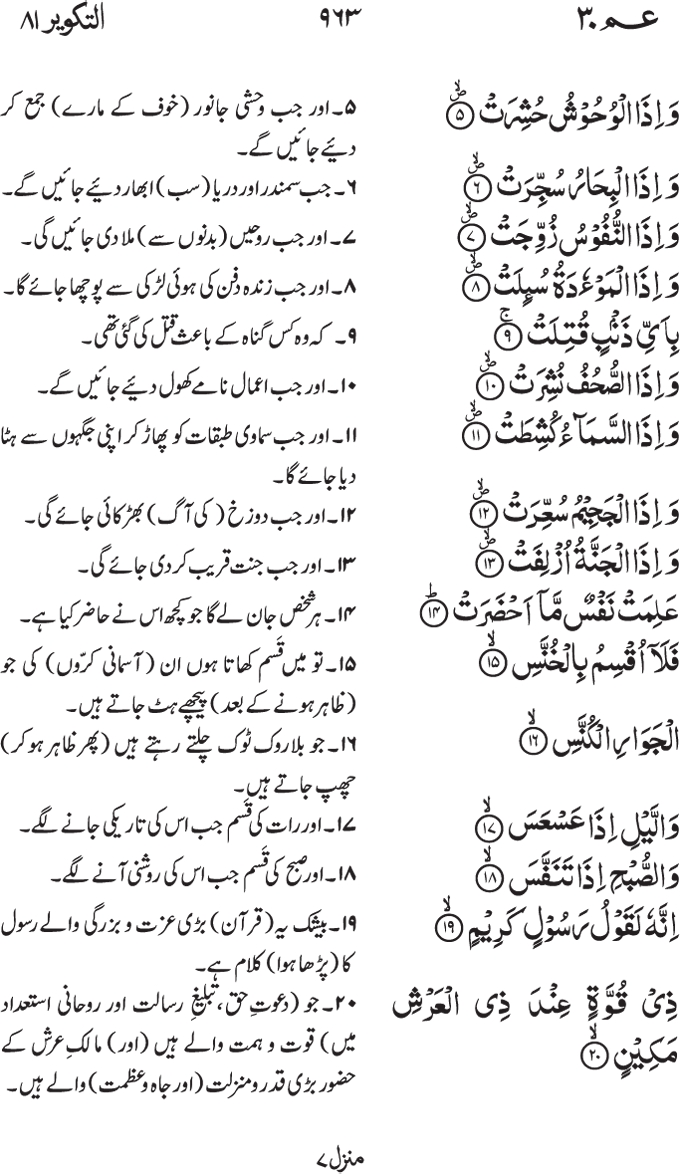 عـم ۳۰ ۹۶۳ التکویر ۸۱
وَ اِذَا الْوُحُوْشُ حُشِرَتْ ۪ۙ﴿۵﴾
۵۔اور جب وحشی جانور (خوف کے مارے) جمع کر
دیئے جائیں گے۔
وَ اِذَا الْبِحَارُ سُجِّرَتْ ۪ۙ﴿۶﴾
۶۔جب سمندر اور دریا (سب) ابھار دیئے جائیں گے۔
وَ اِذَا النُّفُوْسُ زُوِّجَتْ ۪ۙ﴿۷﴾
۷۔اور جب روحیں (بدنوں سے) ملا دی جائیں گی۔
وَ اِذَا الْمَوْءٗدَةُ سُىِٕلَتْ ۪ۙ﴿۸﴾
۸۔اور جب زندہ دفن کی ہوئی لڑکی سے پوچھا جائے گا۔
بِاَیِّ ذَنْۢبٍ قُتِلَتْ ۚ﴿۹﴾
۹۔ کہ وہ کس گناہ کے باعث قتل کی گئی تھی۔
وَ اِذَا الصُّحُفُ نُشِرَتْ ۪ۙ﴿۱۰﴾
۱۰۔اور جب اعمال نامے کھول دیئے جائیں گے۔
وَ اِذَا السَّمَآءُ كُشِطَتْ ۪ۙ﴿۱۱﴾
۱۱۔اور جب سماوی طبقات کو پھاڑ کر اپنی جگہوں سے ہٹا
دیا جائے گا۔
وَ اِذَا الْجَحِیْمُ سُعِّرَتْ ۪ۙ﴿۱۲﴾
۱۲۔اور جب دوزخ ( کی آگ) بھڑکائی جائے گی۔
وَ اِذَا الْجَنَّةُ اُزْلِفَتْ ۪ۙ﴿۱۳﴾
۱۳۔اور جب جنت قریب کر دی جائے گی۔
عَلِمَتْ نَفْسٌ مَّاۤ اَحْضَرَتْ ؕ﴿۱۴﴾
۱۴۔ہر شخص جان لے گا جو کچھ اس نے حاضر کیا ہے۔
فَلَاۤ اُقْسِمُ بِالْخُنَّسِ ۙ﴿۱۵﴾
۱۵۔تو میں قَسم کھاتا ہوں ان (آسمانی کرّوں) کی جو
(ظاہر ہونے کے بعد) پیچھے ہٹ جاتے ہیں۔
الْجَوَارِ الْكُنَّسِ ۙ﴿۱۶﴾
۱۶۔جو بلاروک ٹوک چلتے رہتے ہیں (پھر ظاہر ہوکر)
چھپ جاتے ہیں۔
وَ الَّیْلِ اِذَا عَسْعَسَ ۙ﴿۱۷﴾
۱۷۔اور رات کی قَسم جب اس کی تاریکی جانے لگے۔
وَ الصُّبْحِ اِذَا تَنَفَّسَ ۙ﴿۱۸﴾
۱۸۔اور صبح کی قَسم جب اس کی روشنی آنے لگے۔
اِنَّهٗ لَقَوْلُ رَسُوْلٍ كَرِیْمٍ ۙ﴿۱۹﴾
۱۹۔بیشک یہ (قرآن) بڑی عزت و بزرگی والے رسول
کا (پڑھا ہوا) کلام ہے۔
ذِیْ قُوَّةٍ عِنْدَ ذِی الْعَرْشِ
مَكِیْنٍ ۙ﴿۲۰﴾
۲۰۔جو (دعوتِ حق، تبلیغِ رسالت اور روحانی استعداد
میں) قوت و ہمت والے ہیں (اور) مالکِ عرش کے
حضور بڑی قدر و منزلت (اور جاہ و عظمت) والے ہیں۔
منزل ۷